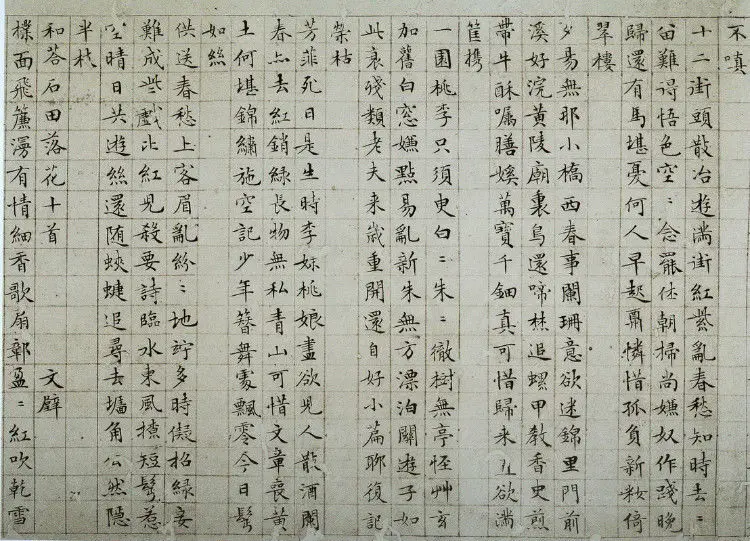 不嗔
十二街頭散冶遊滿街紅紫亂春愁知時去〻
留難得悟色空〻念罷休朝掃尚嫌奴作踐晚
歸還有馬堪憂何人早起憐惜孤負新妝倚
翠樓
夕昜無那小橋西春事闌珊意欲迷錦里門前
溪好浣黃陵廟裏鳥還啼焚追螺甲教香史煎
帶牛酥囑膳萬寶千鈿真可惜歸來直欲滿
筐攜
一園桃李只須臾白〻朱〻徹樹無亭怪艸玄
加舊白窓嫌點易亂新朱無方漂泊關遊子如
此衰殘類老夫来歲重開還自好小篇聊復記
榮枯
芳菲死日是生時李妹桃娘盡欲兒人散酒闌
春亦去紅銷綠長物無私青山可惜文章喪黃
土何堪錦繡施空記少年簪舞處飄零今日鬢
如絲
供送春愁上客眉亂紛〻地竚多時儗招綠妾
難成些戲比紅兒殺要詩臨水東風撩短鬢惹
空晴日共遊絲還随蛺蝶追尋去墻角公然隱
半枝
和荅石田落花十首 文壁
撲面飛簾漫有情細香歌扇鄣盈〻紅吹乾雪